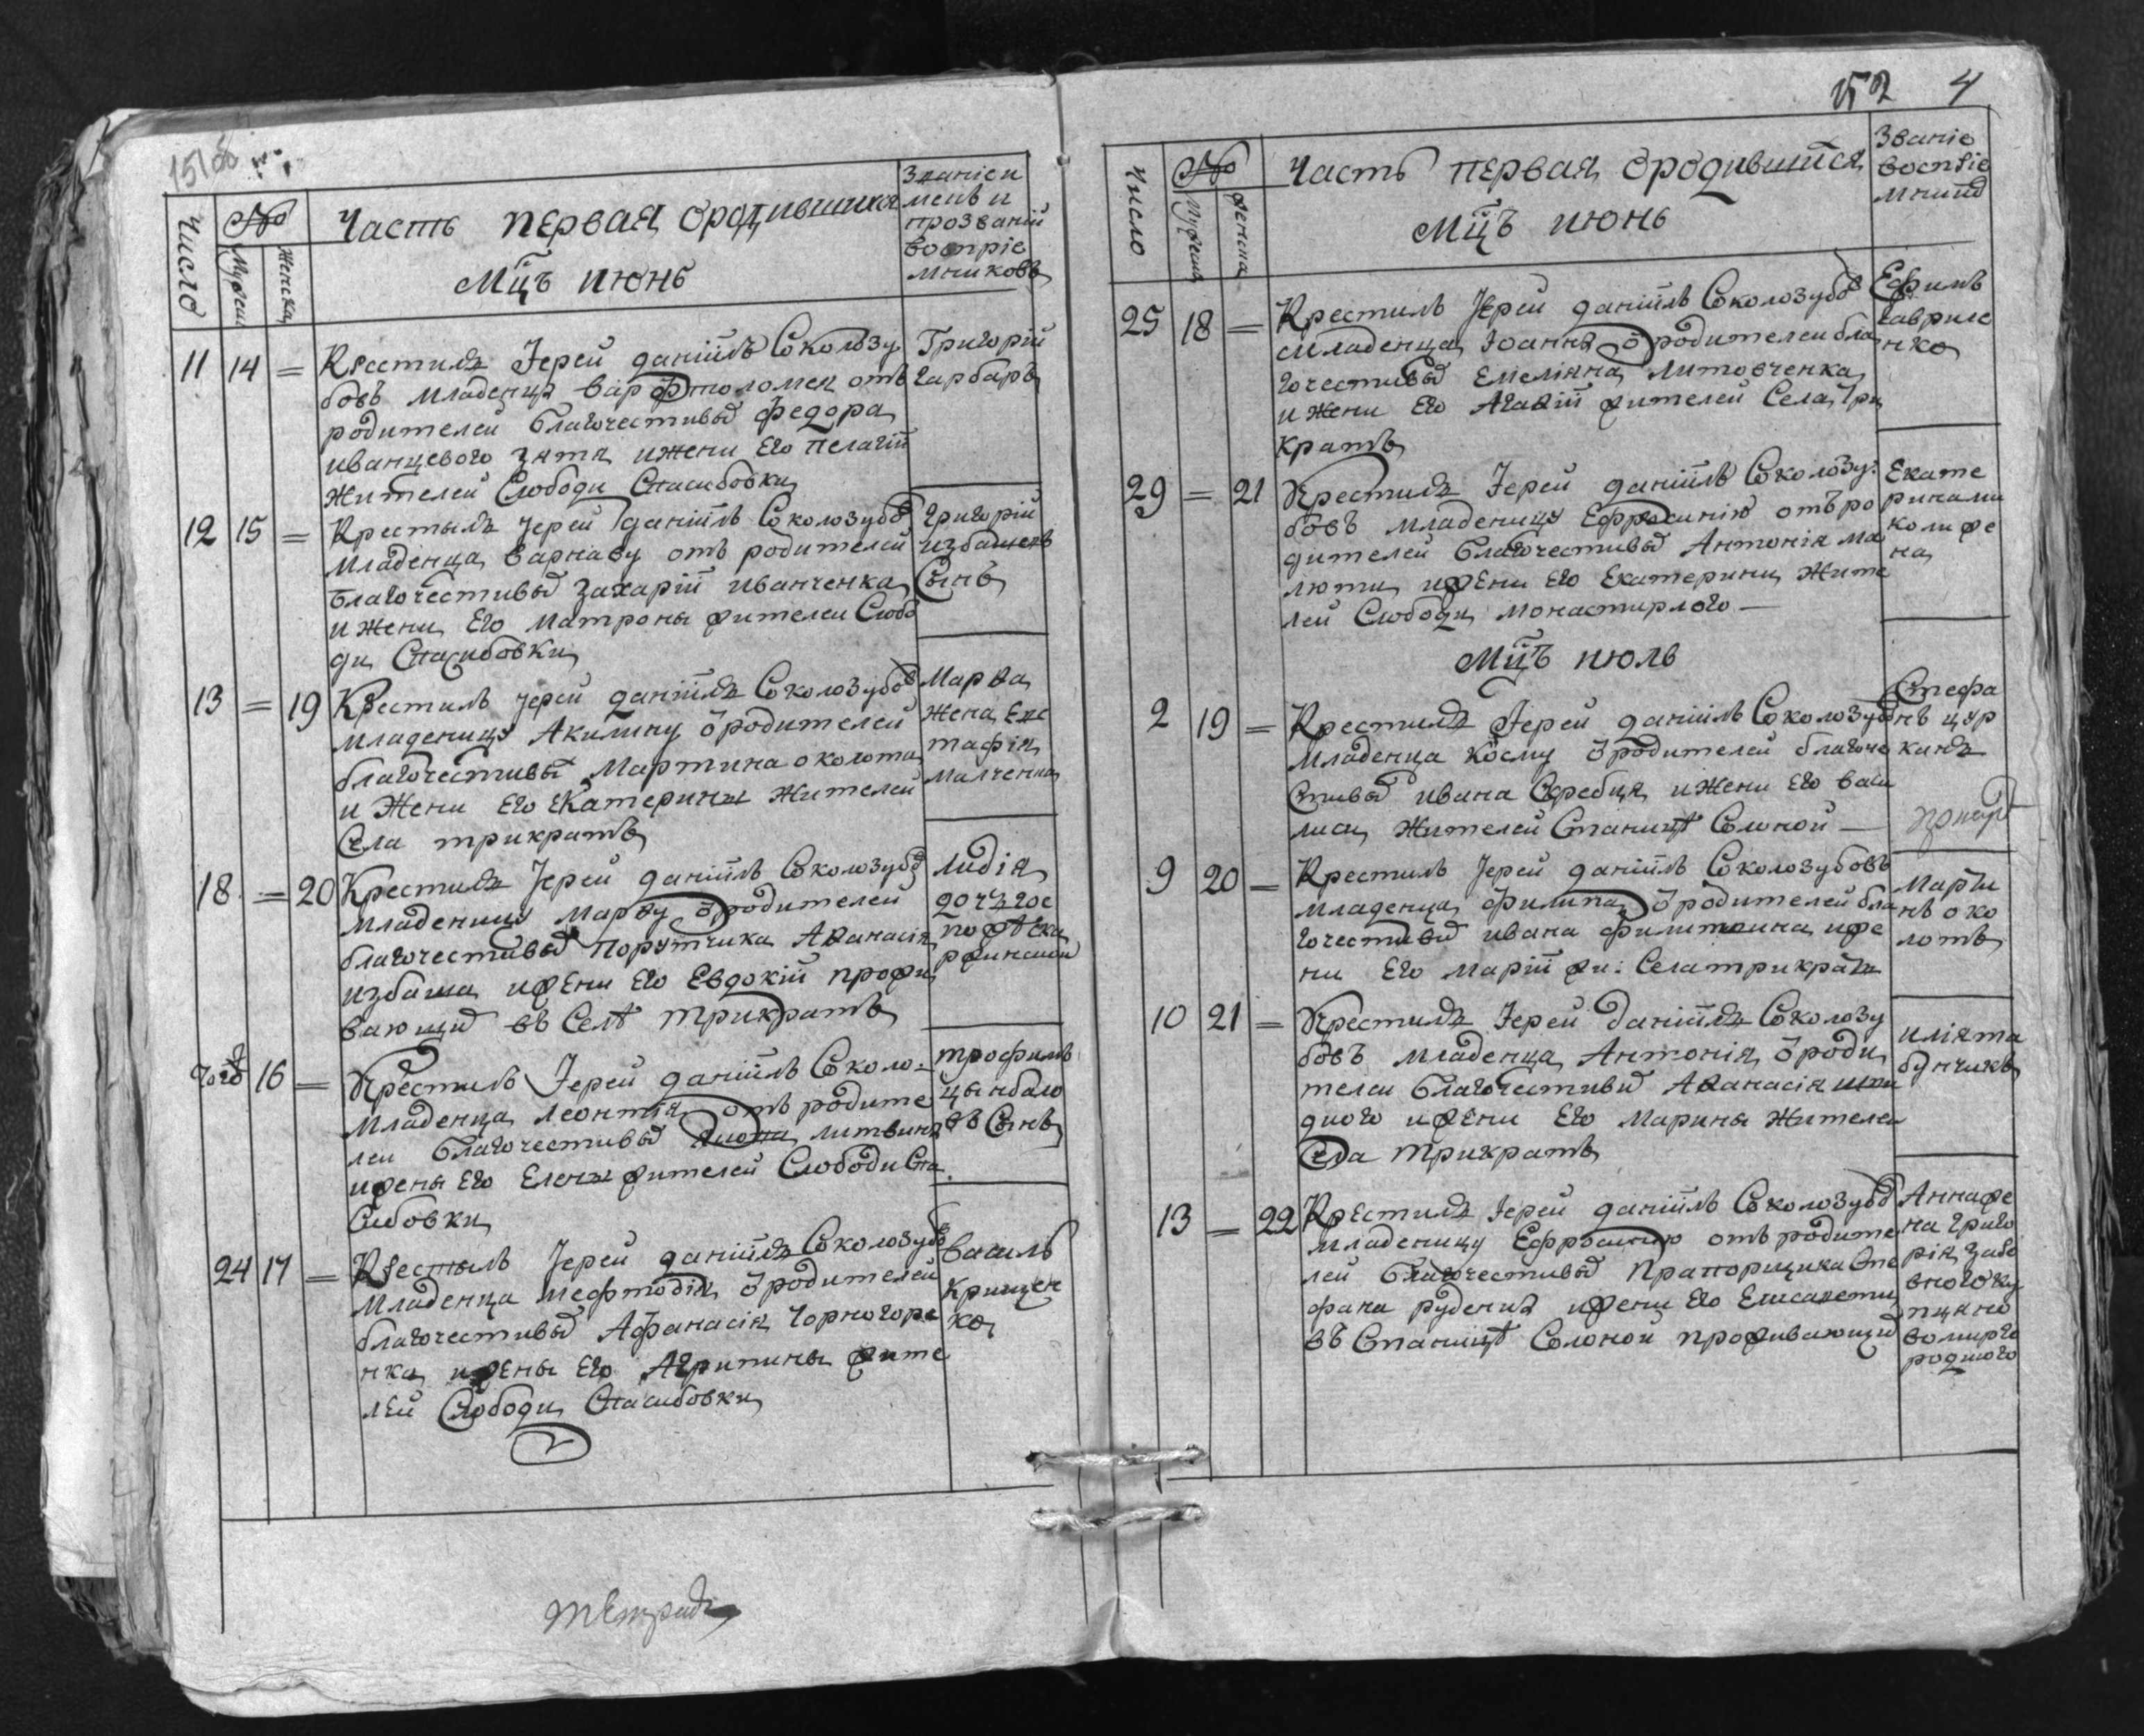 Число
№
Мужеск
Женска
Часть первая ородившихся
Мц̃ъ июнь
Званіе и
менъ и
прозваній
воспріе
мниковъ
11 14 =
Крестилъ Іерей даніилъ Соколозу
бовъ младенца варфтоломея отъ
родителей благочестивых федора
иванцевого зятя ижени Его пелагіи
жителей Слободи Спасибовки
Григорій
гарбаръ
12 15 =
Крестылъ Іерей даніилъ Соколозубов
младенца варнаву отъ родителей
благочестивых захарій иванченка
и жени Его матроны жителеи Слобо
ди Спасибовки
григорій
избашевъ
Сынъ
13 = 19
Крестилъ Іерей даніилъ Соколозубов
младеницу Акилину ѿродителей
благочестивых мартина околота
и жени Его Екатерины жителей
Села трикратъ
Марѳа
жена, Евс
тафія
малченка
18 = 20
Крестилъ Іерей даніилъ Соколозубов
младеницу марѳу ѿродителей
благочестивых порутчика Аѳанасія
избаша ижени Его Евдокіи прожи
вающих въ Селѣ трикратѣ
лидія
дочъ гос
пожѣ ска
ржинской
16 =
Крестилъ Іерей даніилъ Соколо-
младенца леонтія отъ родите
леи благочестивых литвина
ижены Его Елены жителей Слободи Спа
Сибовки
трофимъ
цынбало
въ Сынъ
24 17 =
Крестылъ Іерей даніилъ Соколозубов
младенца мефтодія ѿродителей
благочестивых Афанасія чорногоре
нка ижены Его Агрипины жите
лей Слободи Спасибовки
василь
крищен
ко
тетради
52 4
Число
№
Мужеск
женска
Часть первая ородившихся
Мц̃ъ июнь
Званіе
воспріе
мних
25 18 =
Крестилъ Іерей даніилъ Соколозубов
младенца Іоанна ѿродителеи бла
гочестивых Емеліяна литовченка
и жени Его Агафіи жителей Села Три
кратъ
Ефимъ
гавриле
нко
29 = 21
Крестилъ Іерей даніилъ Соколозу:
бовъ младеницу Ефросинію отъро
дителей благочестивых Антонія ма
люти ижени Его Екатерини жите
лей Слободи монастирлого —
Екате
рина ми
коли же
на
Мц̃ъ июль
2 19 =
Крестилъ Іерей даніилъ Соколозубов
младенца косму ѿродителей благоче
Стивых ивана Скребця и жени Его васи
лиси жителей Станицѣ Солоной —
Стефа
нъ цур
канъ
9 20 =
Крестилъ Іерей даніилъ Соколозубовъ
младенца филипа ѿродителей бла
гочестивых ивана филитоина иже
ни Его маріи жи: Села трикратъ
Марти
нъ око
лотъ
10 21 =
Крестилъ Іерей даніилъ Соколозу
бовъ младенца Антонія ѿроди
телеи благочестивых Аѳанасія
дного ижени Его марины жителеи
Села трикратъ
илія та
бунчикъ
13 = 22
Крестилъ Іерей даніилъ Соколозубов
младеницу Ефросинію отъ родите
лей благочестивых прапорщика Сте
фана руденка ижени Его Елисавети
въ Станицѣ Солоной проживающих
Анна же
на григо
рія забо
вного ку
пця но
вомирго
родского